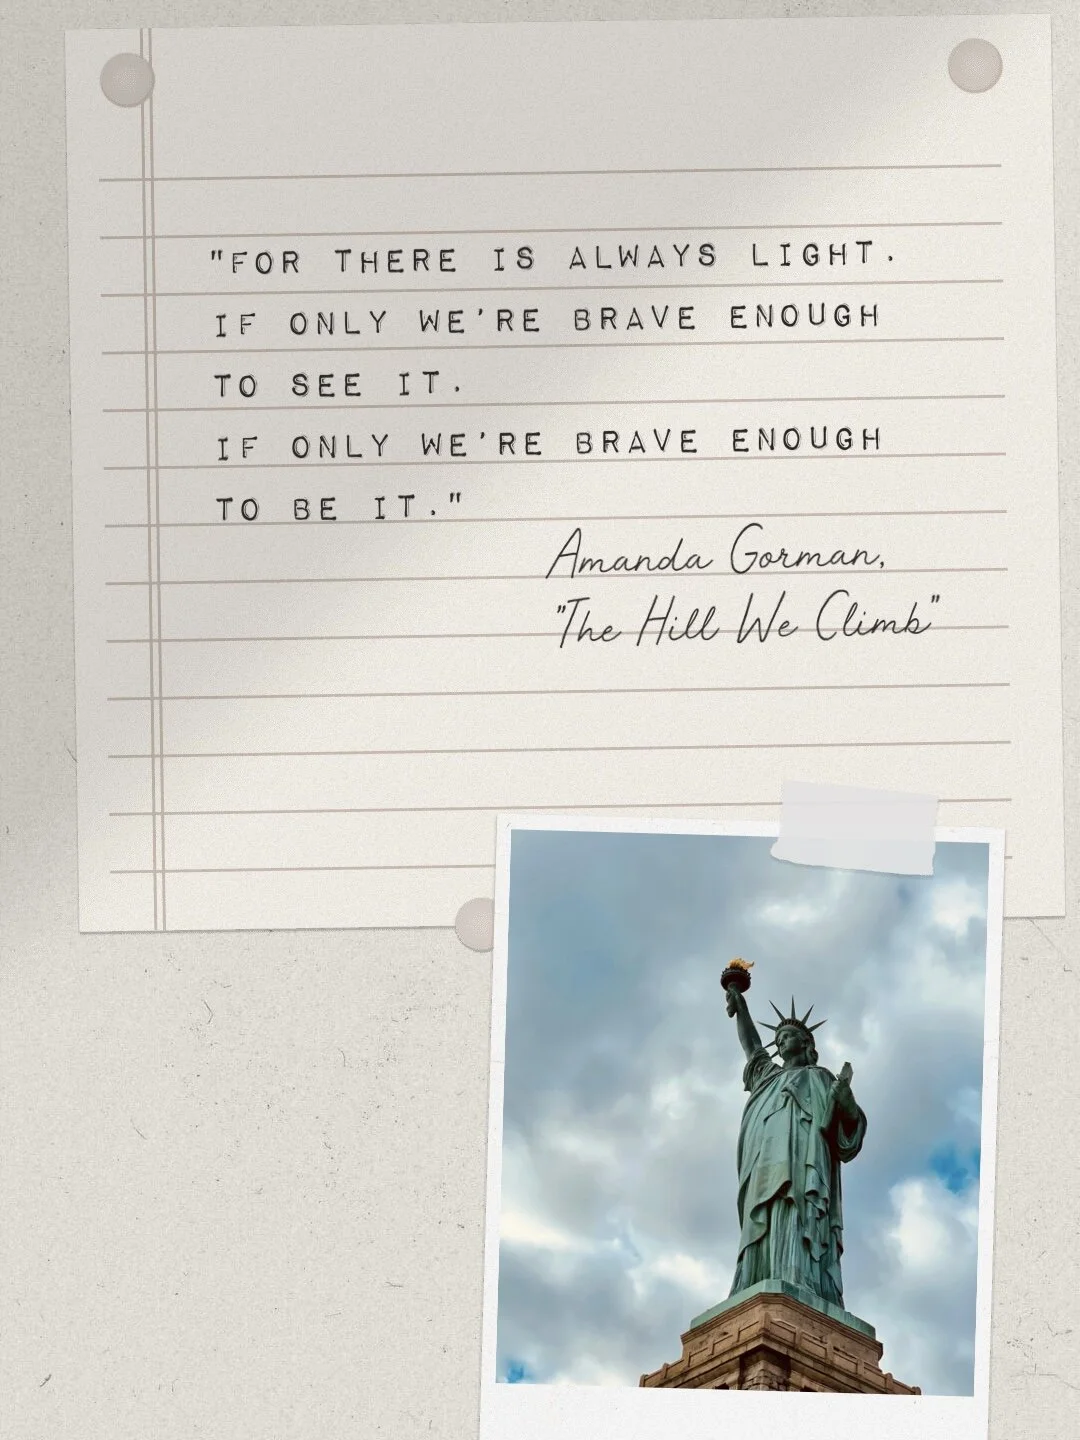 "FOR THERE IS ALWAYS LIGHT.
IF ONLY WE'RE BRAVE ENOUGH
TO SEE IT.
IF ONLY WE'RE BRAVE ENOUGH
TO BE IT."
Amanda Gorman,
"The Hill We Climb"